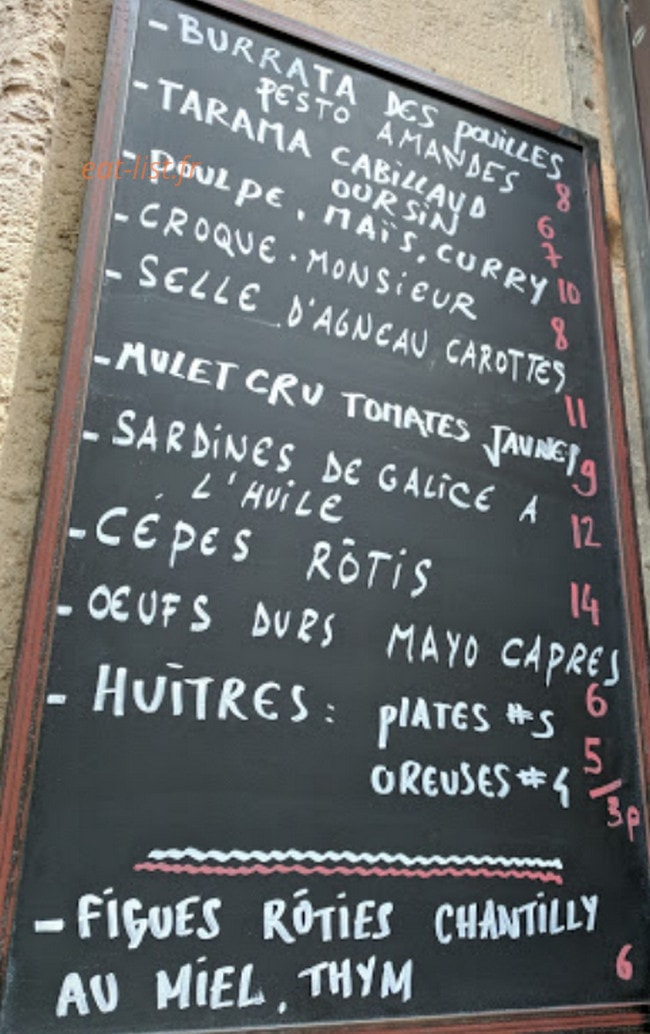 - BURRATA DES POUILLES
PESTO AMANDES
8
- TARAMA CABILLAUD
OURSIN
6
- POULPE, MAÏS, CURRY
7
- CROQUE-MONSIEUR
10
- SELLE D'AGNEAU, CAROTTES
8
- MULET CRU TOMATES JAUNES
11
- SARDINES DE GALICE A
L'HUILE
9
12
- CÉPES RÔTIS
14
- OEUFS DURS MAYO CAPRES
6
- HUÎTRES: PLATES #5
5
CREUSES #4
/3P
- FIGUES RÔTIES CHANTILLY
AU MIEL, THYM
6
eat-list.fr